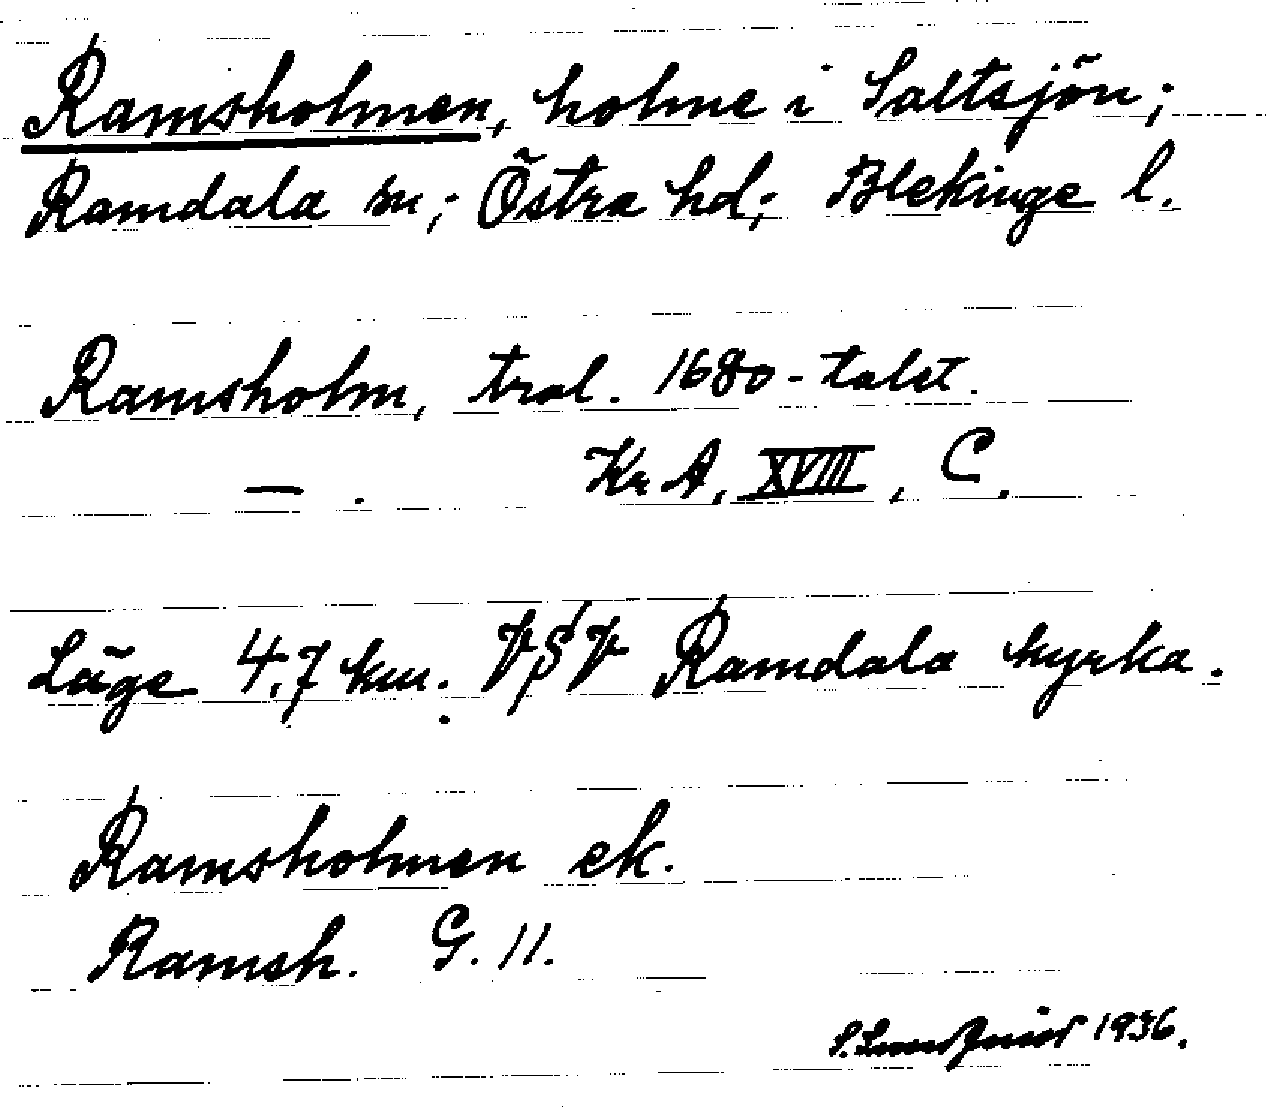 Ramsholmen, holme i Saltsjön;
Ramdala sn; Östra hd; Blekinge l.
Ramsholm, trol. 1680-talet.
— . Kr A, XVIII, C.
Läge 4,7 km. VSV Ramdala kyrka.
Ramsholmen ek.
Ramsh. G. 11.
S. 1936.